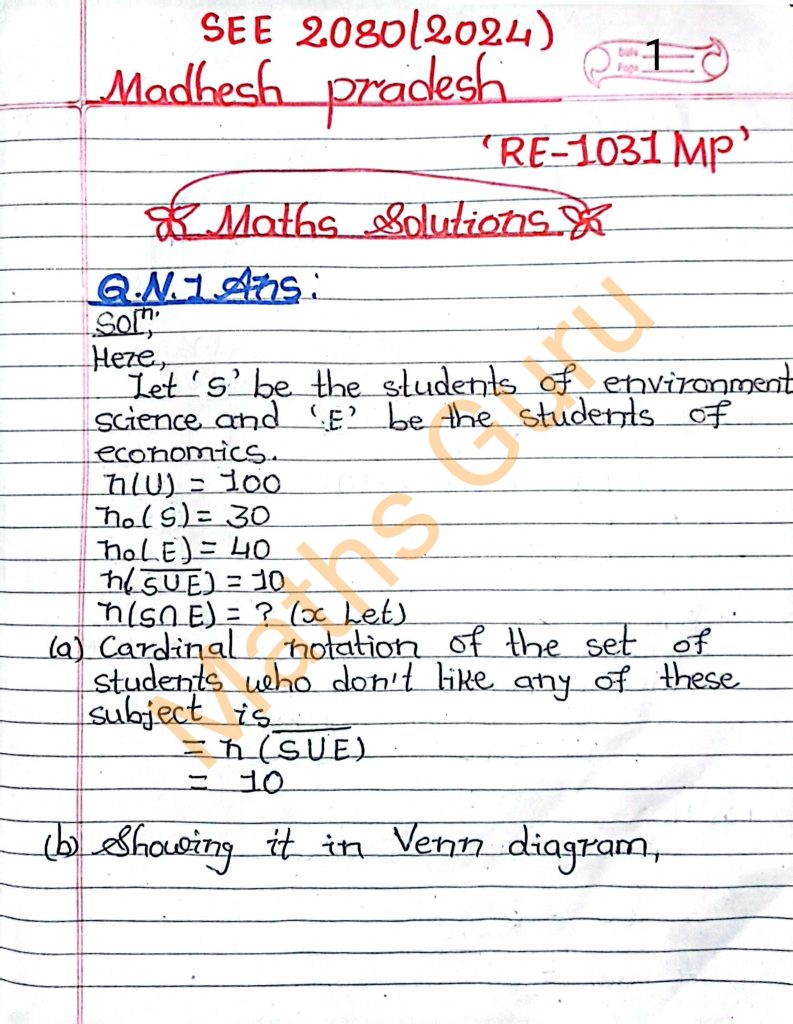 SEE 2080(2024)
Date
Page
1
Madhesh pradesh
'RE-1031 MP'
Maths Solutions
Q.N.1 Ans:
Solⁿ,
Here,
Let 'S' be the students of environment
science and 'E' be the students of
economics.
n(U) = 100
n₀(S) = 30
n₀(E) = 40
n(S̅∪̅E̅) = 10
n(S∩E) = ? (x Let)
(a) Cardinal notation of the set of
students who don't like any of these
subject is
= n(S̅∪̅E̅)
= 10
(b) Showing it in Venn diagram,
Maths Guru